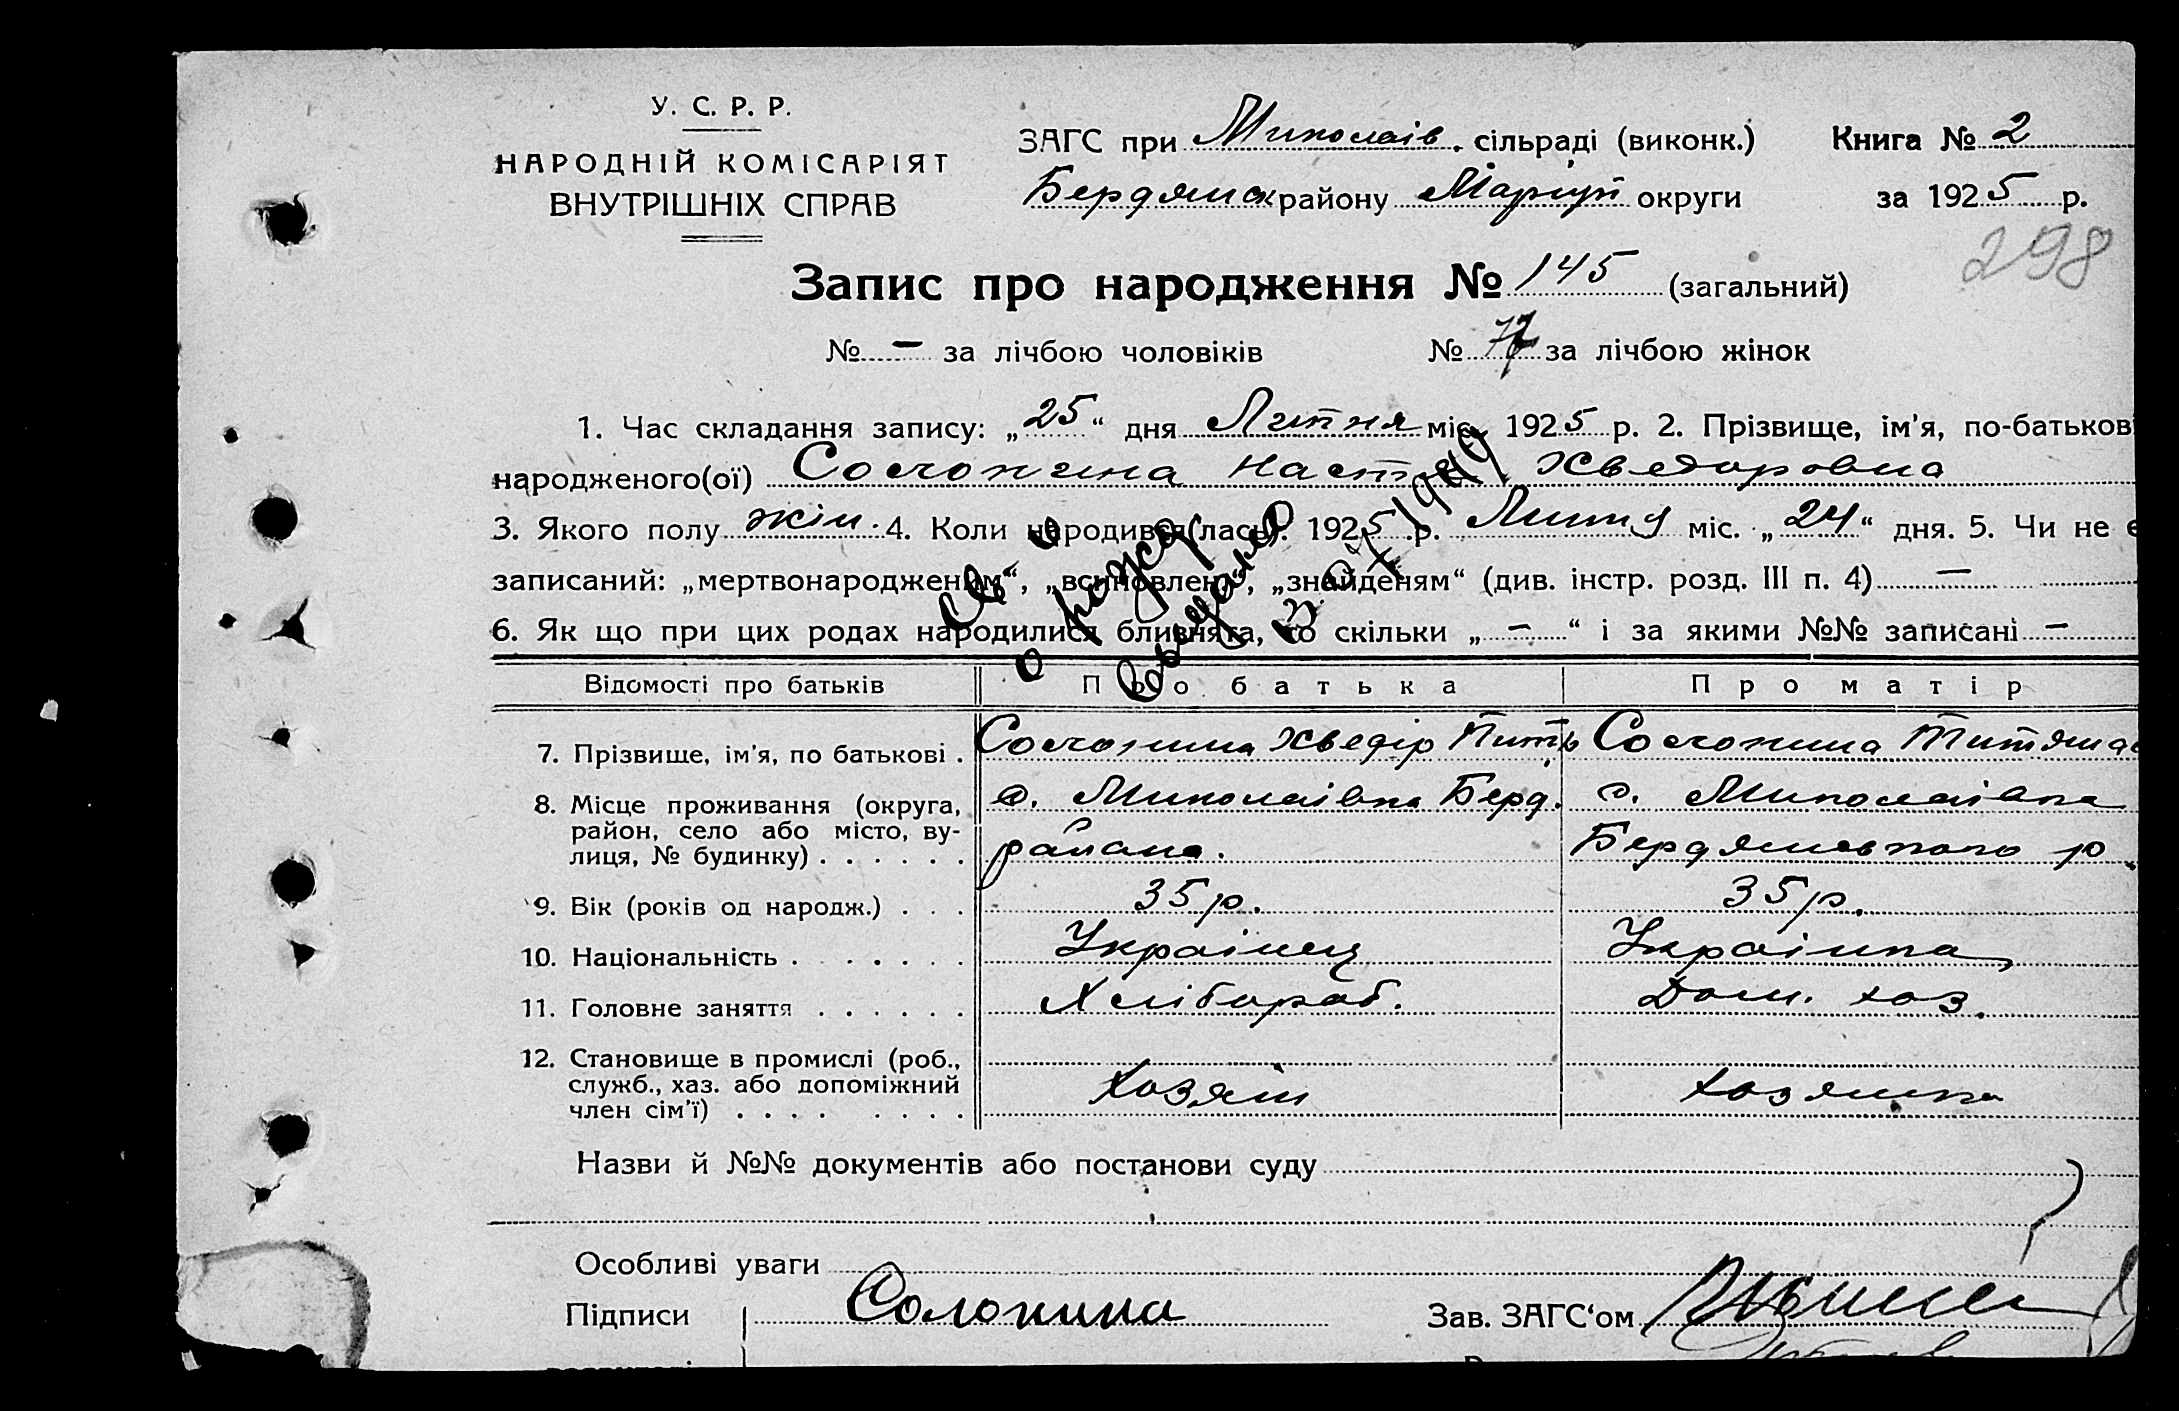 У. С. Р. Р.
НАРОДНІЙ КОМІСАРІЯТ
ВНУТРІШНІХ СПРАВ
ЗАГС при Миколаів. сільраді (виконк.) Книга № 2
Бердянск району Маріуп округи за 1925 р.
298
Запис про народження № 145 (загальний)
№ — за лічбою чоловіків № 77 за лічбою жінок
1. Час складання запису: „25“ дня Липня міс. 1925 р. 2. Прізвище, ім'я, по-батькові
народженого(ої) Солонина Настя Хведоровна
3. Якого полу жін. 4. Коли народився(лась). 1925 р. Липня міс. „24“ дня. 5. Чи не є
записаний: „мертвонародженим“, „всиновлени“, „знайденям“ (див. інстр. розд. III п. 4) —
6. Як що при цих родах народилися близнята, то скільки „ — “ і за якими №№ записані —
Св о
о рожд
выдано
1949
Відомості про батьків Про батька Про матір
7. Прізвище, ім'я, по батькові . Солонина Хведір Солонина
8. Місце проживання (округа, район, село або місто, вулиця, № будинку) . . . . . . с. Миколаівка Берд. с. Миколаівка
района. Бердянсвкого р.
9. Вік (років од народж.) . . . 35 р. 35 р.
10. Національність . . . . . . . Украінец Украінка
11. Головне заняття . . . . . . Хлібороб. Дом. хоз.
12. Становище в промислі (роб., служб., хаз. або допоміжний член сім'ї) . . . . . . . . Хозяін хозяика
Назви й №№ документів або постанови суду
Особливі уваги
Підписи Солонина Зав. ЗАГС'ом